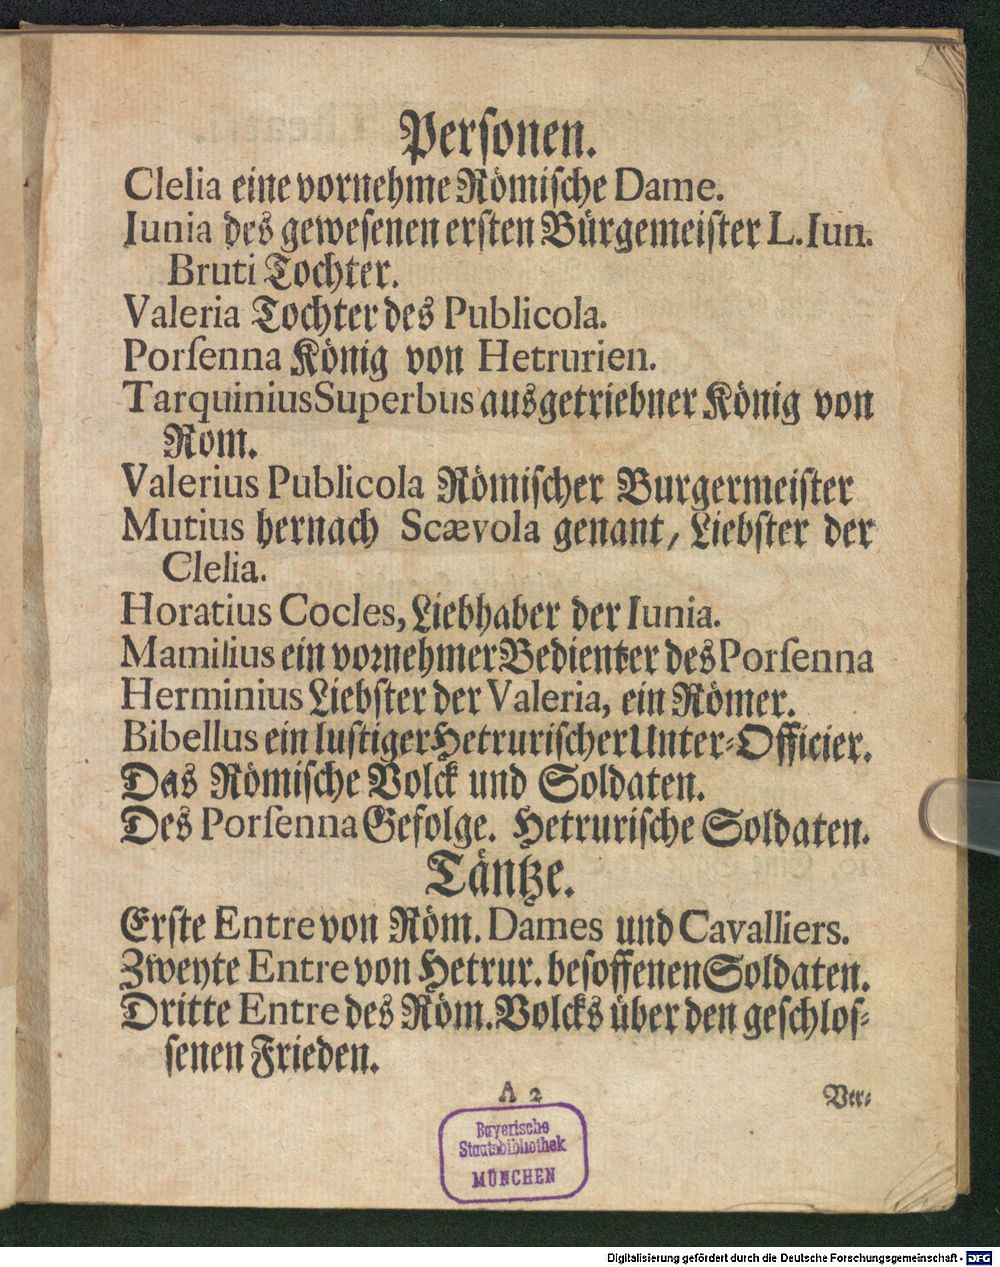 Personen.
Clelia eine vornehme Römische Dame.
Iunia des gewesenen ersten Bürgemeister L. Iun.
Bruti Tochter.
Valeria Tochter des Publicola.
Porſenna König von Hetrurien.
Tarquinius Superbus ausgetriebner König von
Rom.
Valerius Publicola Römiſcher Burgermeiſter
Mutius hernach Scævola genant, Liebſter der
Clelia.
Horatius Cocles, Liebhaber der Iunia.
Mamilius ein vornehmer Bedienter des Porſenna
Herminius Liebſter der Valeria, ein Römer.
Bibellus ein luſtiger Hetruriſcher Unter-Officier.
Das Römiſche Volck und Soldaten.
Des Porſenna Gefolge. Hetruriſche Soldaten.
Täntze.
Erſte Entre von Röm. Dames und Cavalliers.
Zweyte Entre von Hetrur. beſoffenen Soldaten.
Dritte Entre des Röm. Volcks über den geſchloſ-
ſenen Frieden.
A 2
Ver-
Bayerische
Staatsbibliothek
MÜNCHEN
Digitalisierung gefördert durch die Deutsche Forschungsgemeinschaft - DFG